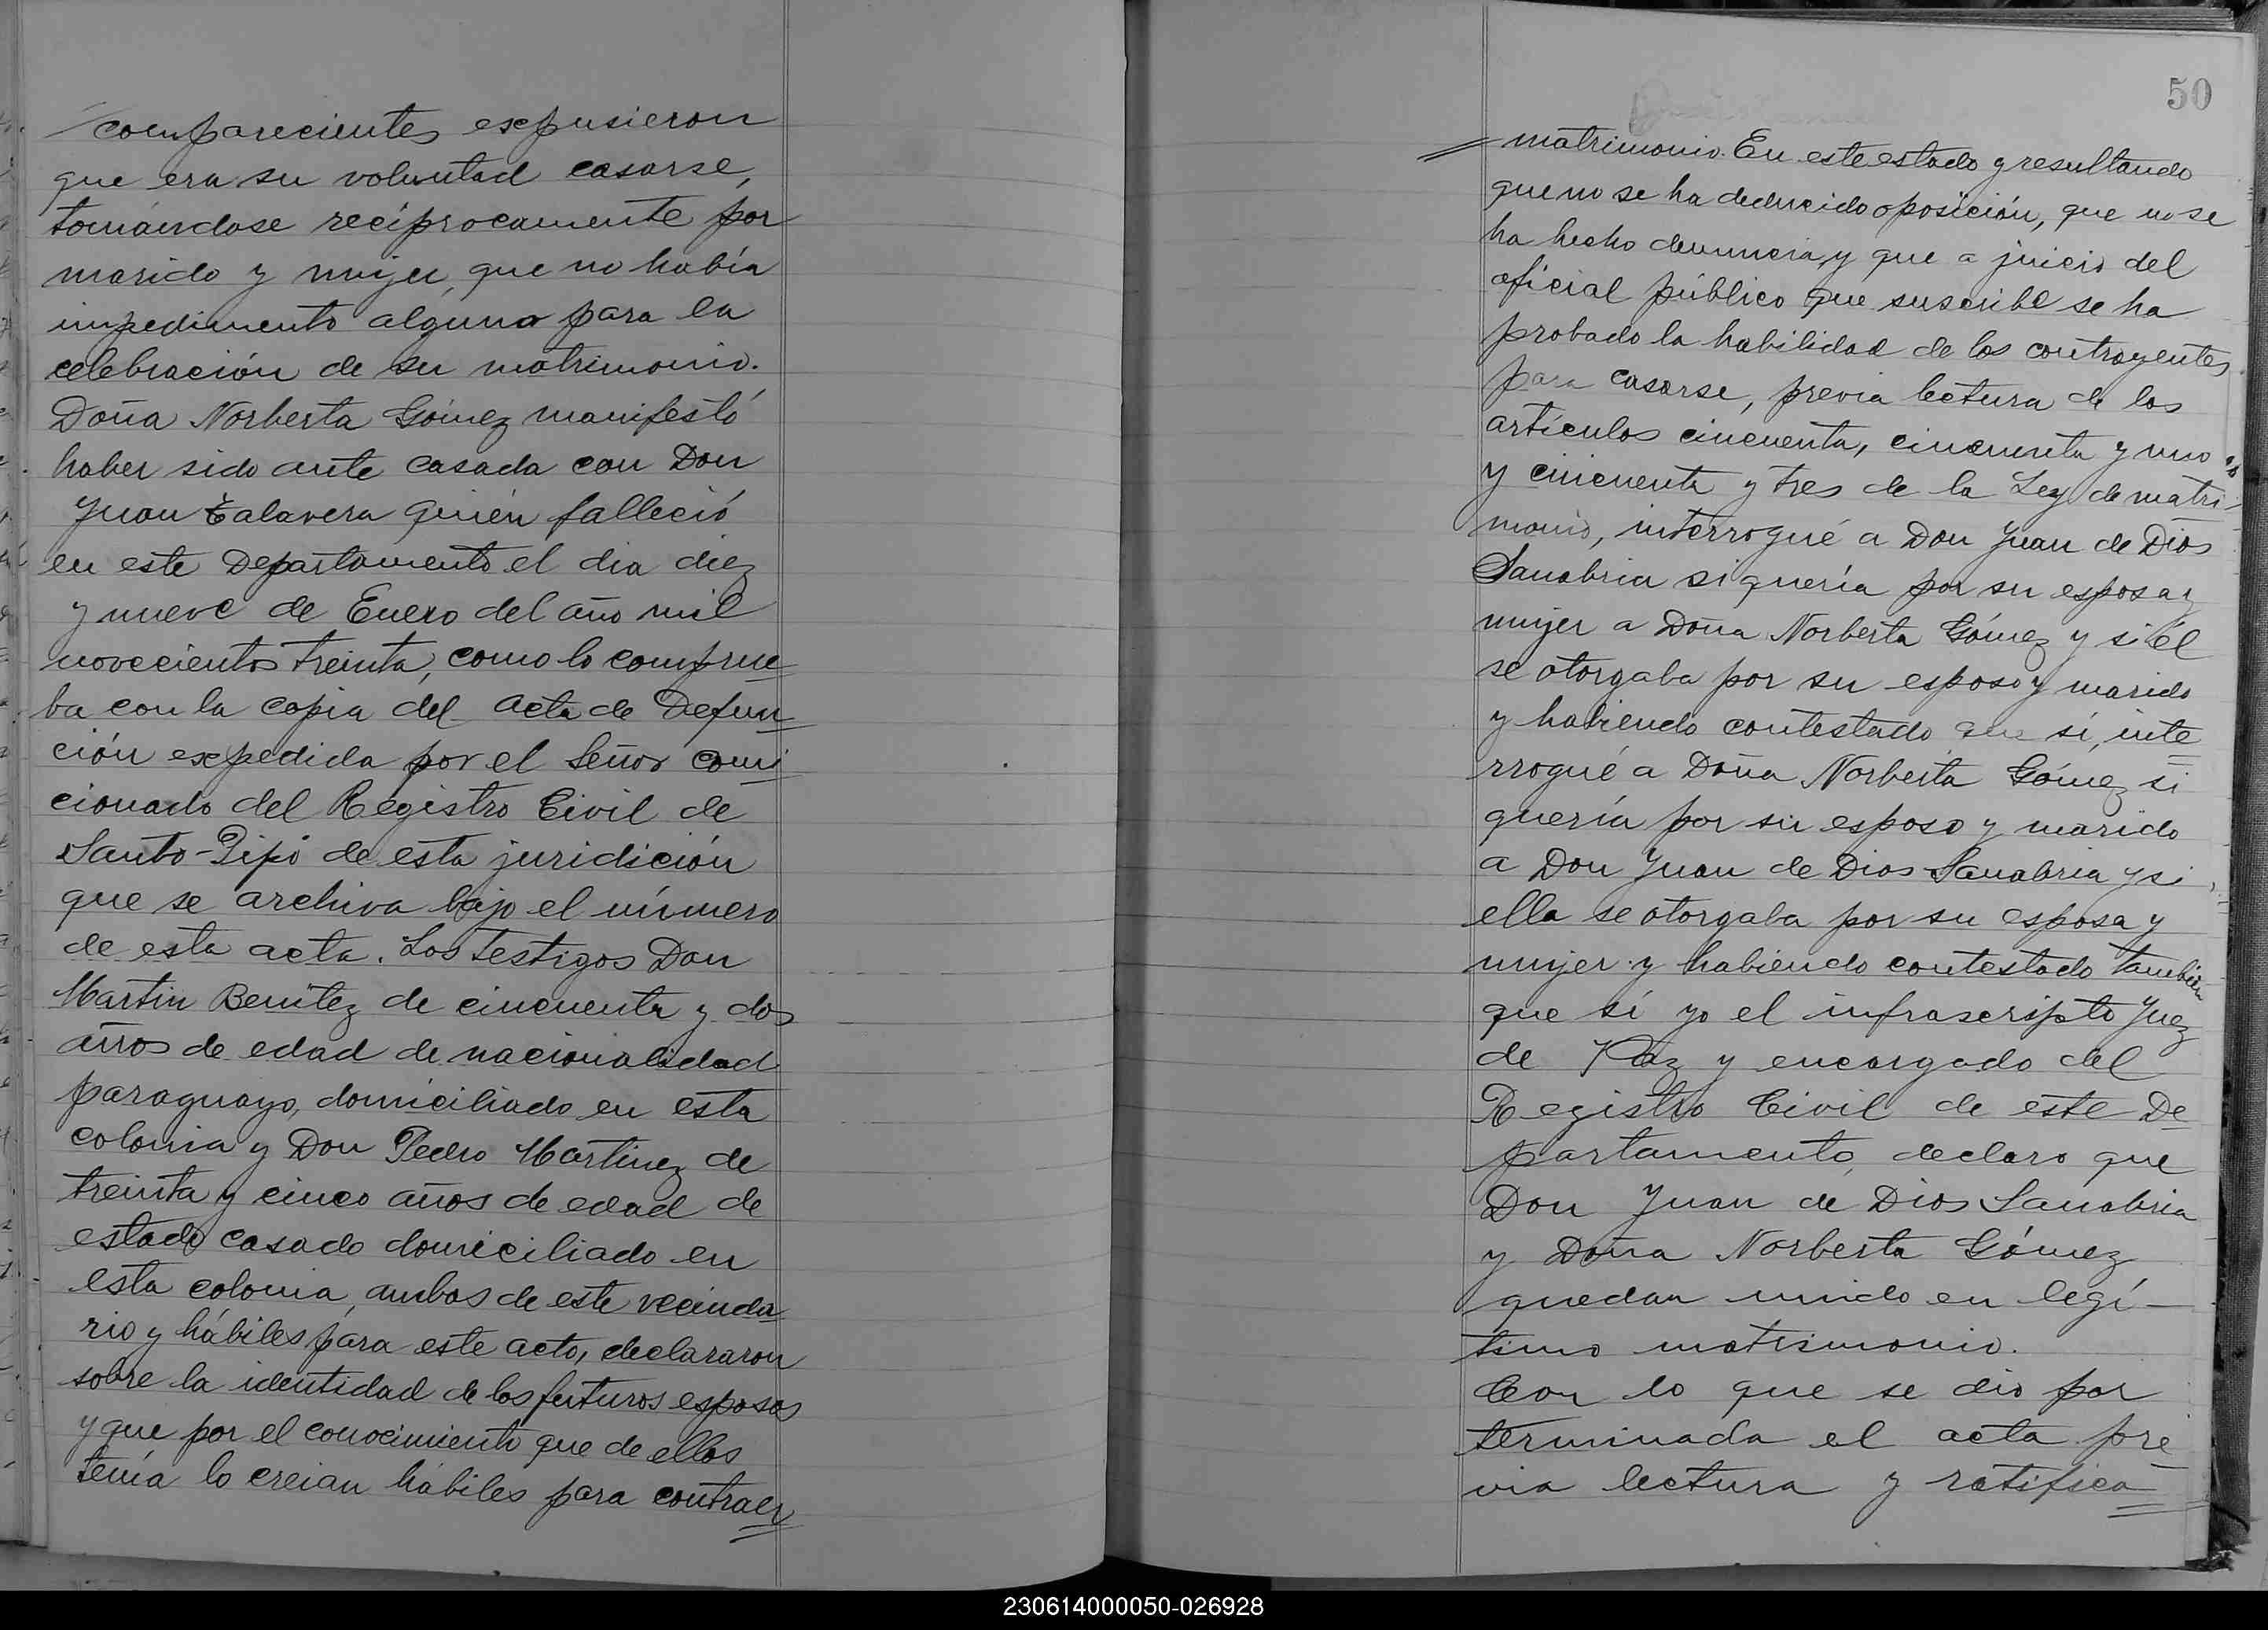 comparecientes expusieron
que era su voluntad casarse,
tomándose reciprocamente por
marido y mujer, que no había
impedimento alguno para la
celebración de su matrimonio.
Doña Norberta Gómez manifestó
haber sido ante casada con Don
Juan Talavera quién falleció
en este Departamento el dia diez
y nueve de Enero del año mil
novecientos treinta, como lo comprue
ba con la copia del acta de Defun
ción expedida por el Señor comi
cionado del Registro Civil de
Santo-Pipó de esta juridición
que se archiva bajo el número
de esta acta. Los testigos Don
Martin Benitez de cincuenta y dos
años de edad de nacionalidad
paraguayo, domiciliado en esta
colonia y Don Pedro Martinez de
treinta y cinco años de edad de
estado casado domiciliado en
esta colonia, ambos de este vecinda
rio y hábiles para este acto, declararon
sobre la identidad de los futuros esposos
y que por el conocimiento que de ellos
tenía lo creian hábiles para contraer
50
matrimonio. En este estado y resultando
que no se ha deducido oposición, que no se
ha hecho denuncia, y que a juicio del
oficial público que suscribe se ha
probado la habilidad de los contrayentes
para casarse, previa lectura de los
artículos cincuenta, cincuenta y uno
y cincuenta y tres de la Ley de matri-
monio, interrogué a Don Juan de Dios
Sanabria si quería por su esposa y
mujer a Doña Norberta Gómez y si él
se otorgaba por su esposo y marido
y habiendo contestado que si, inte
rrogué a Doña Norberta Gómez si
quería por su esposo y marido
a Don Juan de Dios Sanabria y si
ella se otorgaba por su esposa y
mujer y habiendo contestado también
que sí yo el infrascripto Juez
de Paz y encargado del
Registro Civil de este De
partamento, declaro que
Don Juan de Dios Sanabria
y Doña Norberta Gómez
quedan unido en legí-
timo matrimonio.
Con lo que se dio por
terminada el acta pre
via lectura y ratifica
230614000050-026928